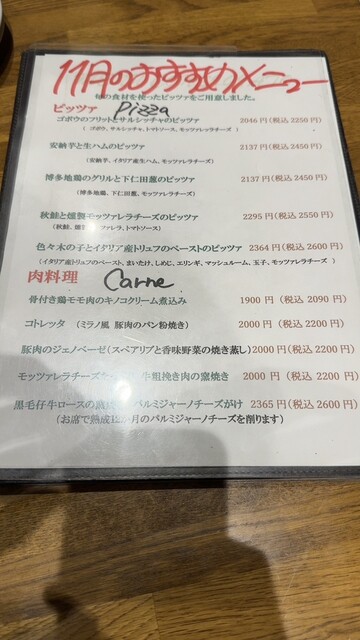 11月のおすすめメニュー
旬の食材を使ったピッツァをご用意しました。
ピッツァ Pizza
ゴボウのフリットとサルシッチャのピッツァ 2046円(税込 2250円)
(ゴボウ、サルシッチャ、トマトソース、モッツァレッラチーズ)
安納芋と生ハムのピッツァ 2137円(税込 2450円)
(安納芋、イタリア産生ハム、モッツァレラチーズ)
博多地鶏のグリルと下仁田葱のピッツァ 2137円(税込 2450円)
(博多地鶏、下仁田葱、モッツァレラチーズ)
秋鮭と燻製モッツァレラチーズのピッツァ 2295円(税込 2550円)
(秋鮭、燻製 ァレラ、トマトソース)
色々木の子とイタリア産トリュフのペーストのピッツァ 2364円(税込 2600円)
(イタリア産トリュフのペースト、まいたけ、しめじ、エリンギ、マッシュルーム、玉子、モッツァレラチーズ)
肉料理 Carne
骨付き鶏モモ肉のキノコクリーム煮込み 1900円(税込 2090円)
コトレッタ (ミラノ風 豚肉のパン粉焼き) 2000円(税込 2200円)
豚肉のジェノベーゼ(スペアリブと香味野菜の焼き蒸し) 2000円(税込 2200円)
モッツァレラチーズ 牛粗挽き肉の窯焼き 2000円(税込 2200円)
黒毛仔牛ロースの パルミジャーノチーズがけ 2365円(税込 2600円)
(お席で熟成 か月のパルミジャーノチーズを削ります)